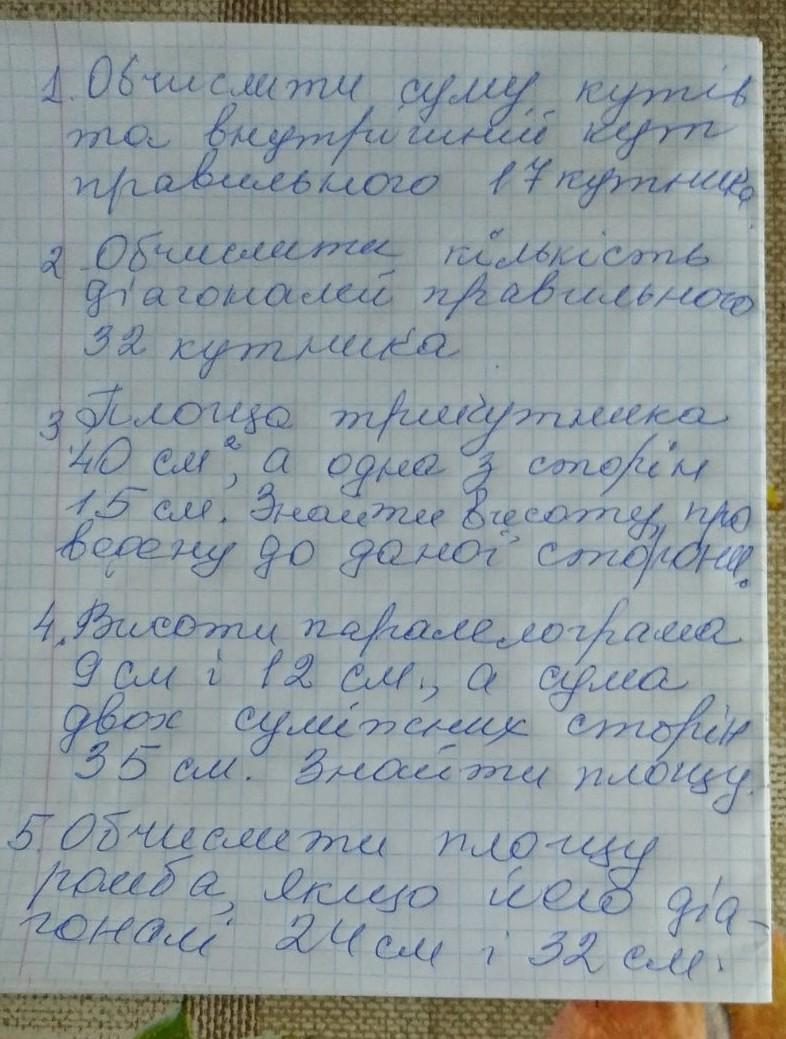 1. Обчислити суму кутів
та внутрішній кут
правильного 17 кутника
2 Обчислити кількість
діагоналей правильного
32 кутника
3 Площа трикутника
40 см², а одна з сторін
15 см. Знайти висоту, про
ведену до даної сторони.
4. Висоти паралелограма
9 см і 12 см., а сума
двох суміжних сторін
35 см. Знайти площу.
5. Обчислити площу
ромба, якщо його діа-
гоналі 24 см і 32 см.